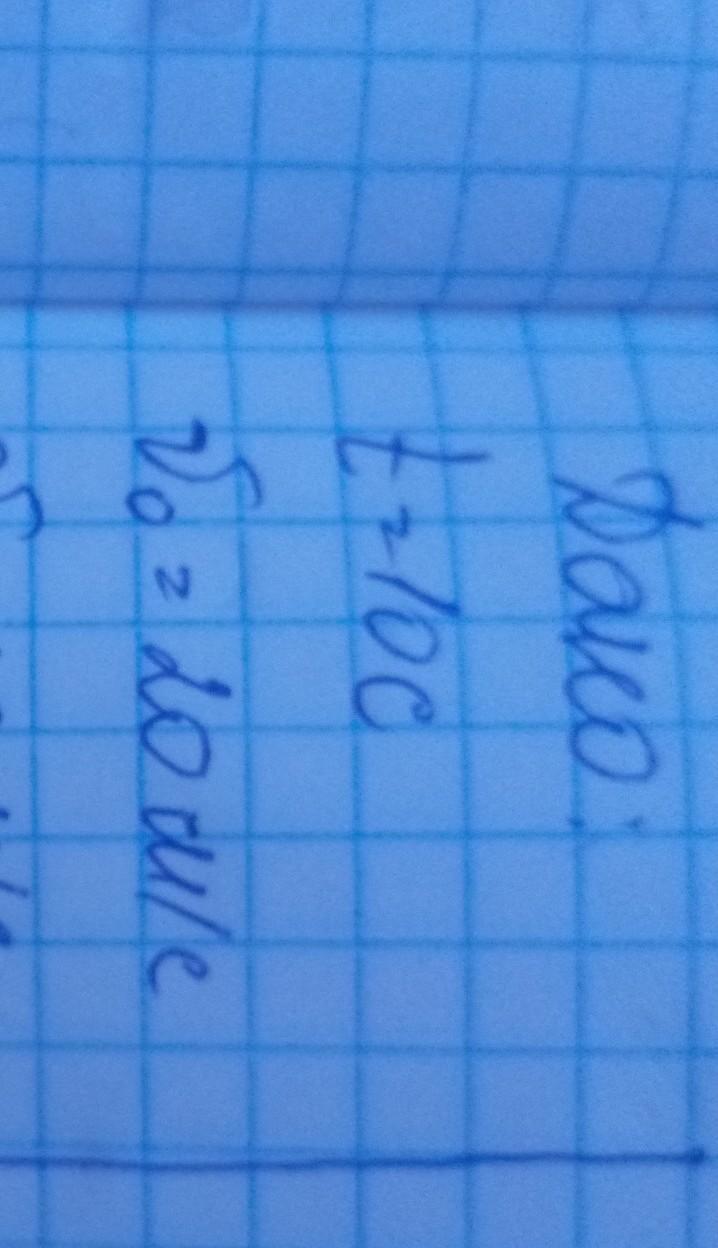 Дано:
t = 10 с
v₀ = 20 м/с